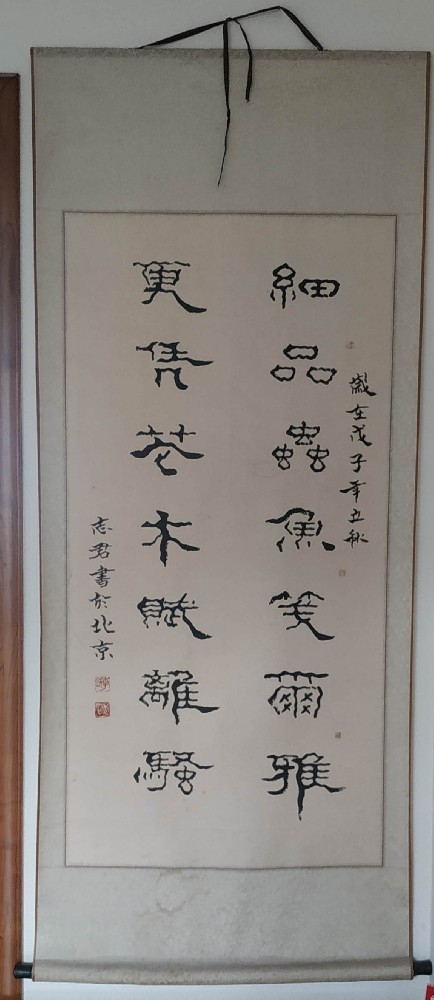 細品蟲魚箋爾雅
歲在戊子年立秋
更凭花木賦離騷
志君書於北京